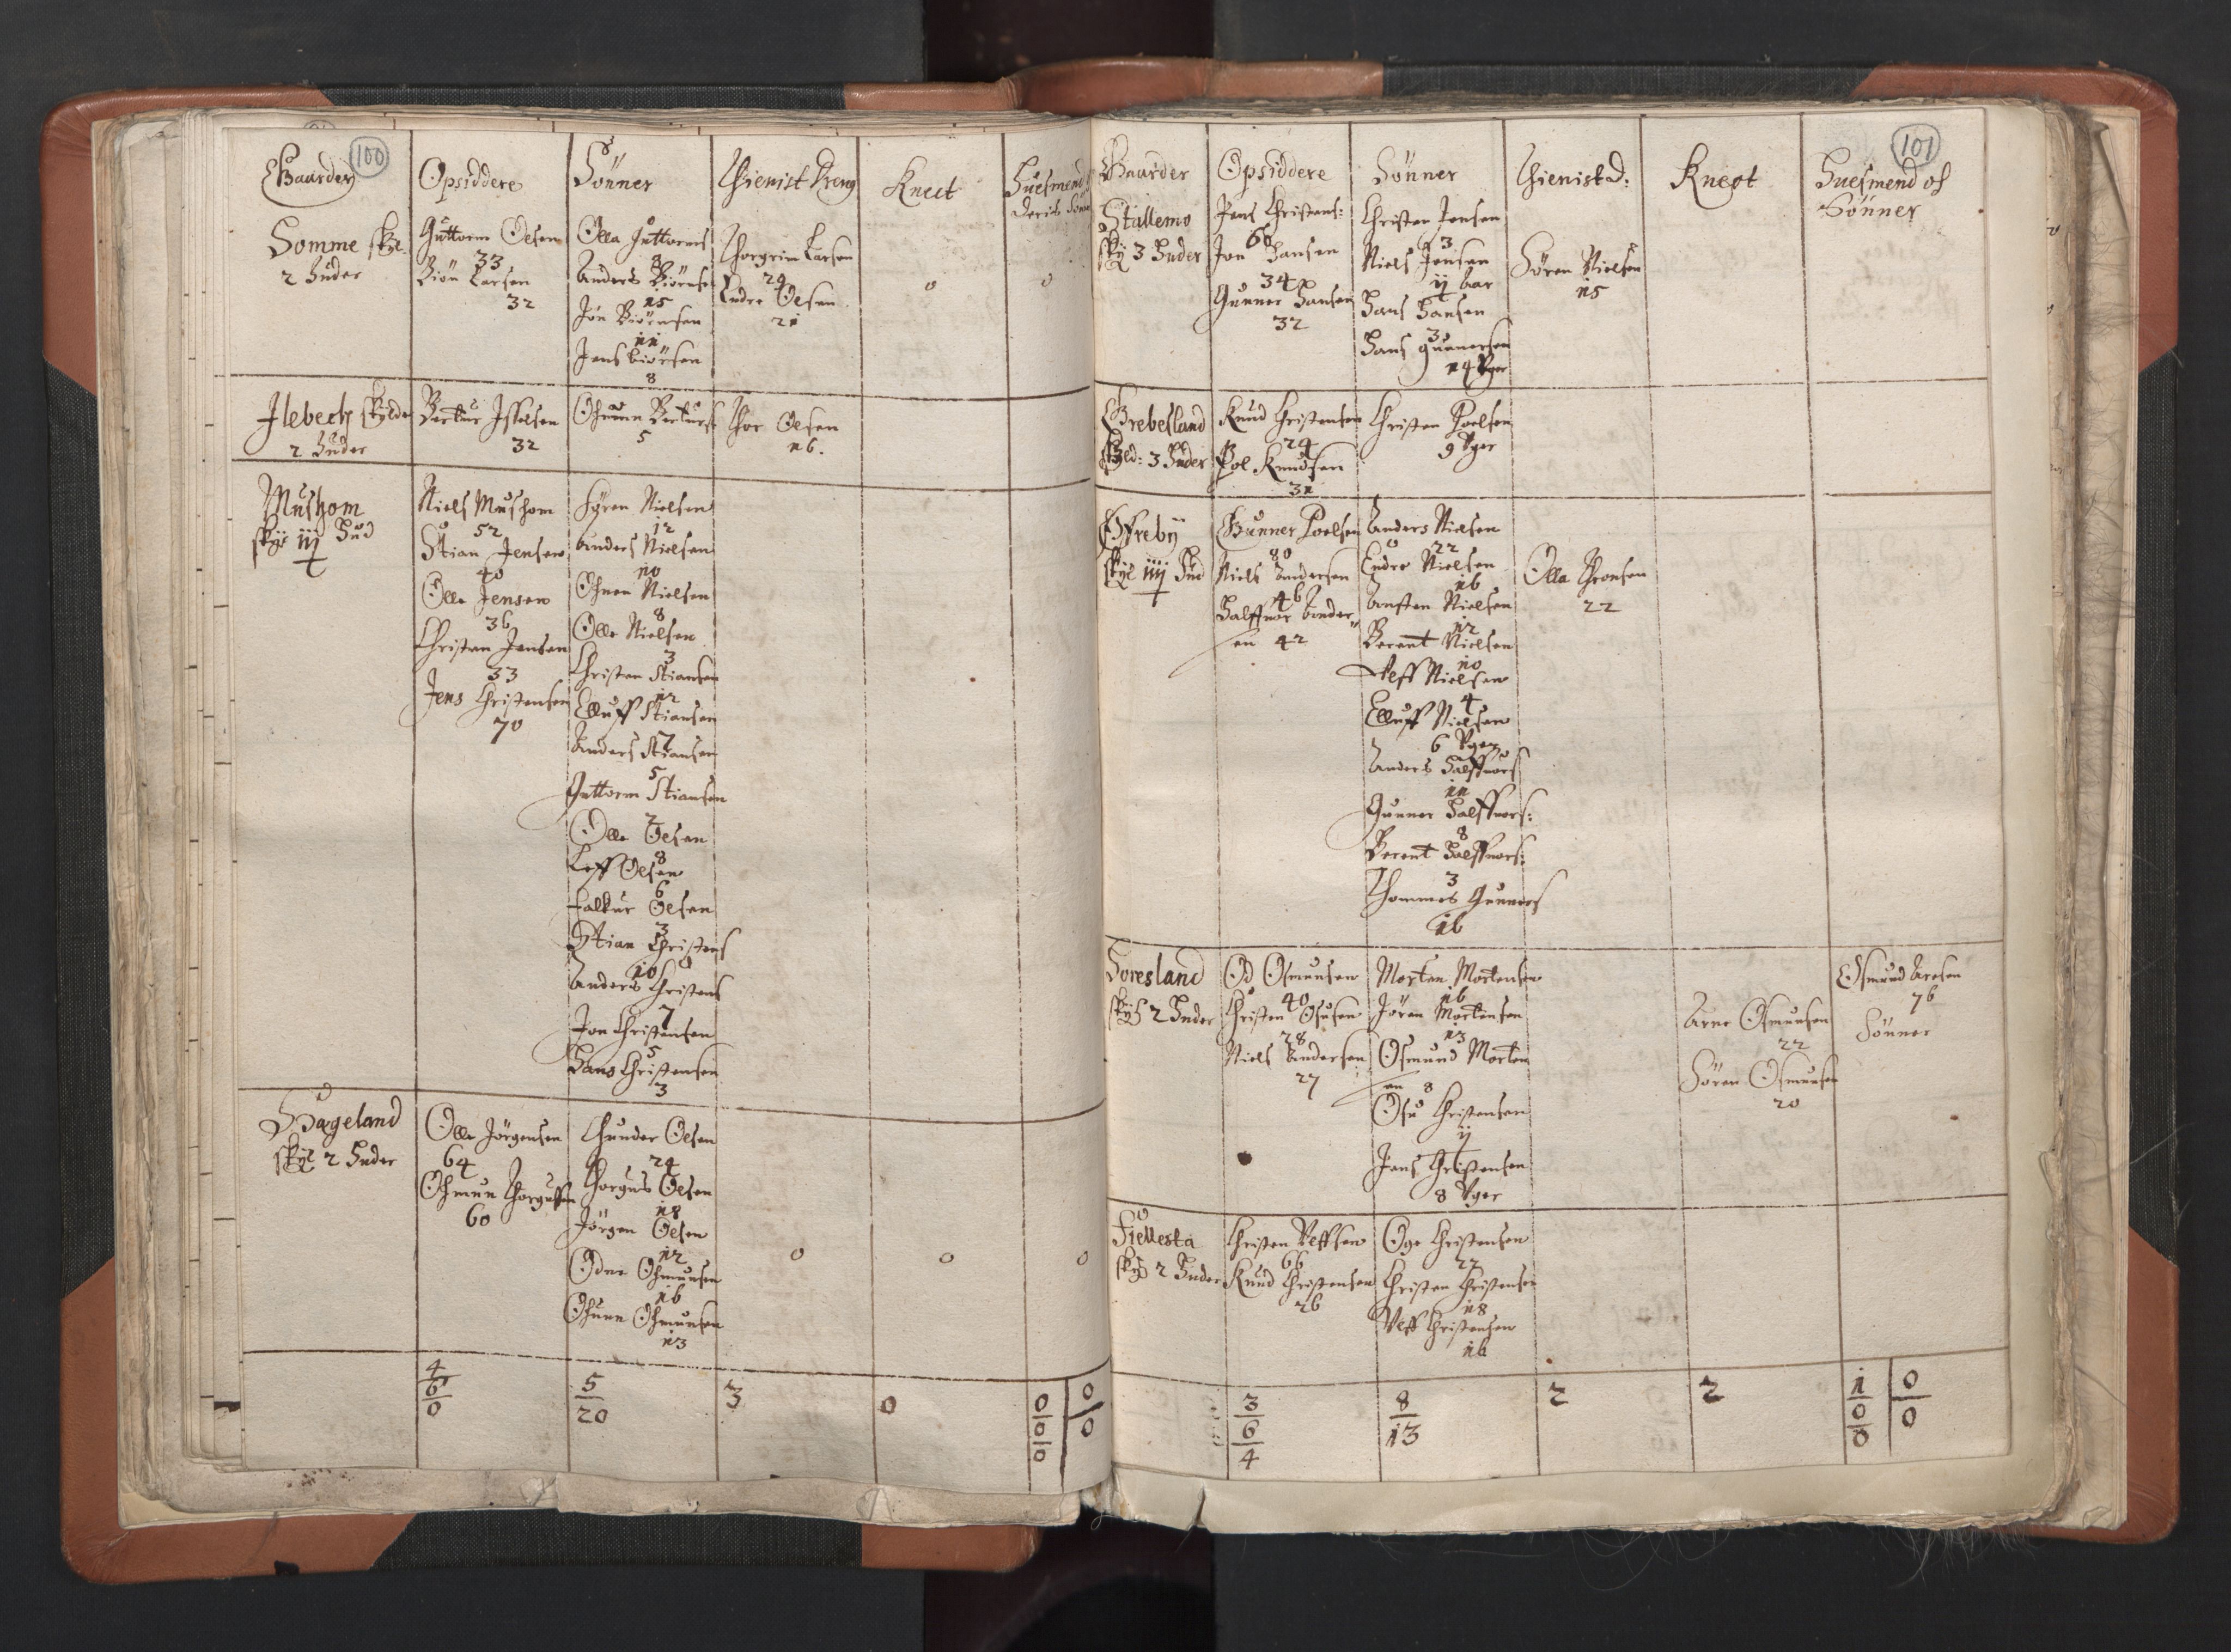 100
Gaarder
Opsiddere
Sönner
Thienist Dreng
Knect
Huesmend
Deris Sönner
Somme skyl.
2 Huder
Guttorm Olsen
33
Biön Larsen
32
Olla Guttorms
8
Anders Biörnss
15
Jön Biörnsen
11
Jens biörsen
8
Thorgrim Larsen
24
Endre Olsen
21
0
0
Ilebech skylder
2 Huder
32
5
Thor Olsen
16.
Mushom
skyl iij Hud
Niels Mushom
52
Stian Jensen
40
Olle Jensen
36
Christen Jensen
33
Jens Christensen
70
Syren Nielsen
12
Anders Nielsen
10
Nielsen
8
Olle Nielsen
3
Christen Stiansen
12
Elluff Stiansen
7
Anders Stiansen
5
Guttorm Stiansen
2
Olle Olsen
8
Leff Olsen
6
Falkur Olsen
3
Stian Christens
10
Anders Christens
7
Jon Christensen
5
Hans Christensen
3
Hægeland
skyl 2 Huder
Olle Jörgensen
64
Ohmun Thorgussen
60
Thunder Olsen
24
Thorgus Olsen
18
Jörgen Olsen
12
Ohmunsen
16
Ohmunsen
13
0
0
0
4
6
0
5
20
3
0
0
0
0
0
0
101
Gaarder
Opsiddere
Sönner
Thienist D:
Knegt
Huesmend oc
Sönner
Stallemo
sky 3 Huder
Jens Christens:
60
Jon Hansen
34
Gunner Hansen
32
Christen Jensen
3
Niels Jensen
ij Aar
Hans Hansen
3
Hans Gunnersen
14 Vger
Sören Nielsen
15
Grebesland
skyld: 3 Huder
Knud Christensen
24
Pol Knudsen
31
Christen Poelsen
9 Vger
Øffreby
skyl iiij Hud
Gunner Poelsen
80
Niels Andersen
46
Halffuor Anders
en 42
Anders Nielsen
22
Endre Nielsen
16
Ansten Nielsen
12
Berent Nielsen
10
Aleff Nielsen
4
Elluff Nielsen
6 Vger
Anders Halffuors
11
Gunner Halffuors:
8
Berent Halffuors:
3
Thommes Gunners
16
Olla Thronsen
22
Horesland
skyl 2 Huder
Od Osmunsen
40
Christen Osusen
28
Niels Andersen
27
Morten Mortensen
16
Jören Mortensen
13
Osmund Morten
en 8
Osu Christensen
ij
Jens Christensen
8 Vger
Arne Osmunsen
22
Sören Osmunsen
20
Osmund Aresen
76
Sönner
Fiellesta
skyl 2 Huder
Christen Vlffsen
66
Knud Christensen
26
Oge Christensen
22
Christen Christensen
18
Vlff Christensen
16
3
6
4
8
13
2
2
1
0
0
0
0